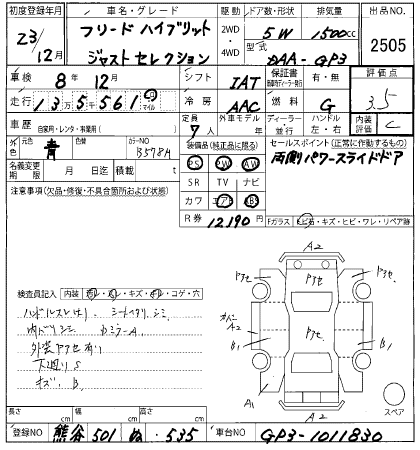 初度登録年月 車名・グレード 駆動 ドア数・形状 排気量 出品NO.
23/12月 フリード ハイブリット ジャストセレクション 2WD・4WD 5W 1500cc 2505
型式 DAA-GP3
車検 8年 12月 シフト IAT 保証書 有・無 評価点
走行 135,561 km マイル 冷房 AAC 燃料 G 3.5
車歴 自家用・レンタ・事業用( ) 定員 7人 外車モデル年 ディーラー・並行 ハンドル 左・右 内装評価 C
外色 元色 青 色替 カラーNO B578A 装備品(純正品に限る) セールスポイント(正常に作動するもの)
PS PW AW 両側パワースライドドア
名義変更期限 月 日迄 積載 t SR TV ナビ
注意事項(欠品・修復・不具合箇所および状態) カワ エアB ABS
R券 12,190円 Fガラス ヒビ石・キズ・ヒビ・ワレ・リペア跡
検査員記入 内装 キズ・コゲ・穴
シミ
外装アセ有り
下廻りS
キズ B
A2
アセ アセ
A2 B1 アセ B1
A1
A2
スペア
長さ cm 幅 cm 高さ cm
登録NO 熊谷 501 ぬ 535 車台NO GP3-1011830